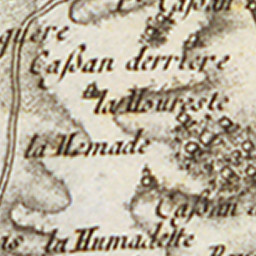 Caßan
quere
Caßan derriere
la Houreste
la Hemade
Caßan
la Humadette